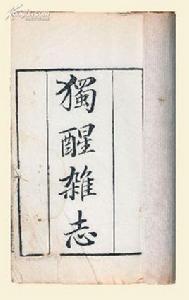 獨醒雜志